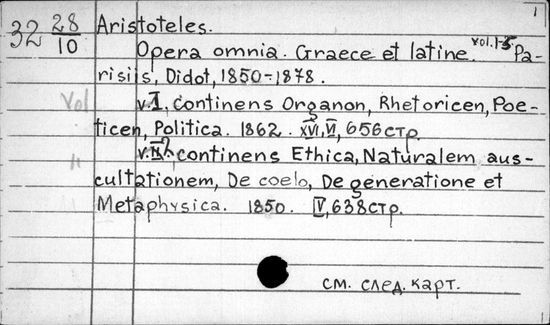 1
32 28/10 Aristoteles.
Opera omnia. Graece et latine. vol. 1-5. Pa-
risiis, Didot, 1850-1878.
Vol v. I. continens Organon, Rhetoricen, Poe-
ticen, Politica. 1862. XVI, VI, 656 стр.
v. continens Ethica, Naturalem aus-
cultationem, De coelo, De generatione et
Metaphysica. 1850. IV, 638 стр.
см. след. карт.